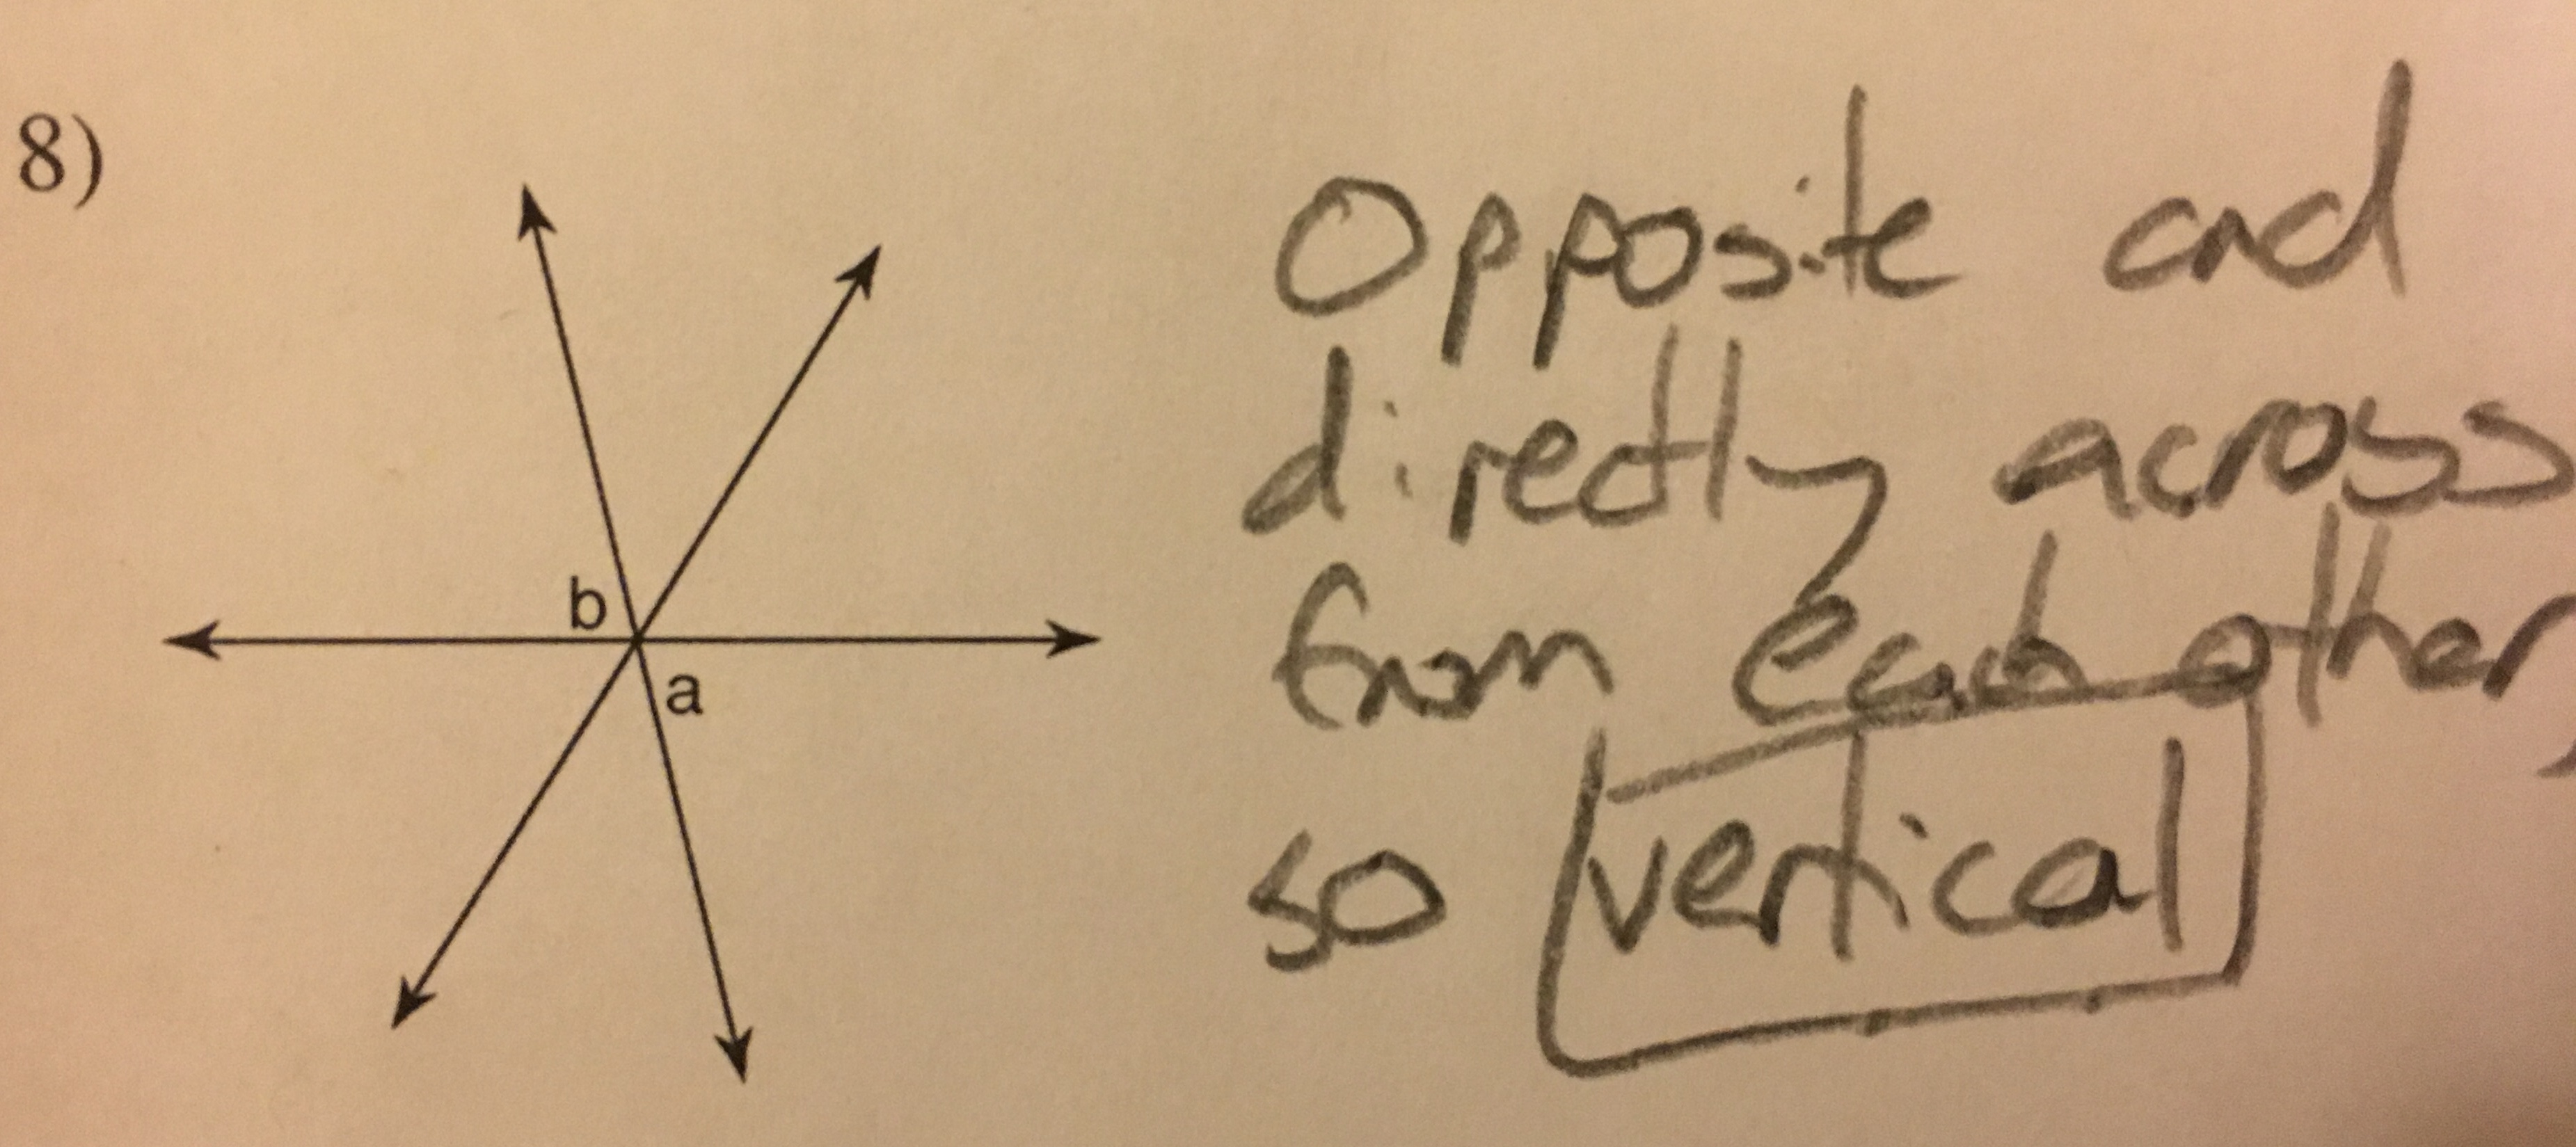 8)
b
a
Opposite and
directly across
from each other,
so vertical